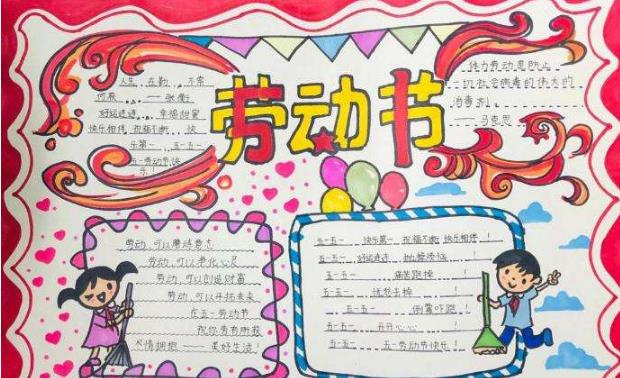 劳动节
人生在勤，不索
何获 ——张衡
好运连连，幸福甜蜜
快乐相伴 祝福不断 快
乐第一 五一五一
五一劳动节快
乐！
体力劳动是防止
一切社会病毒的伟大的
消毒剂。
——马克思
劳动，可以磨练意志
劳动，可以净化心灵
劳动，可以创造财富
劳动，可以开拓未来
在五一劳动节
祝你勇有所获
尽情拥抱——美好生活！
五一五一 快乐第一 祝福不断 快乐相伴！
五一五一 好运连连 抛掉烦恼！
五一五一 痛苦跑掉！
五一五一 忧愁去掉！
五一五一 倒霉吓跑！
五一五一 开开心心！
五一五一 五一劳动节快乐！